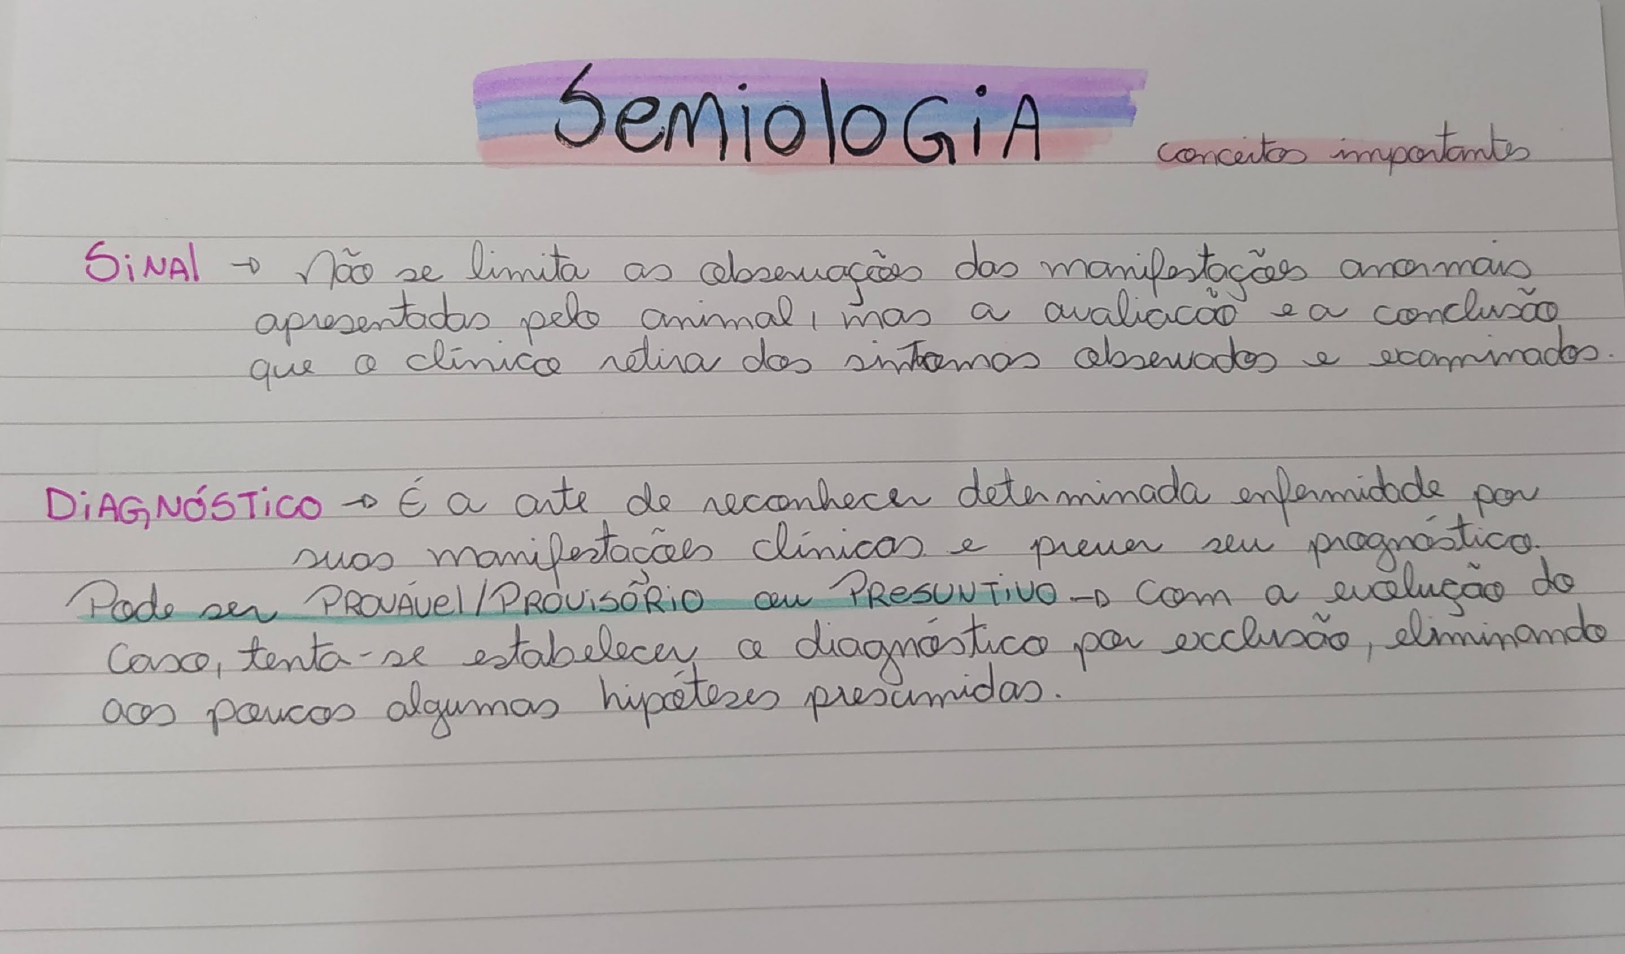 SEMIOLOGIA conceitos importantes
SINAL → Não se limita as observações das manifestações anormais
apresentadas pelo animal, mas a avaliacão e a conclusão
que o clínico retira dos sintomas observados e examinados.
DIAGNÓSTICO → É a arte de reconhecer determinada enfermidade por
suas manifestacões clínicas e prever seu prognóstico.
Pode ser PROVÁVEL/PROVISÓRIO ou PRESUNTIVO → Com a evolução do
caso, tenta-se estabelecer o diagnóstico por exclusão, eliminando
aos poucos algumas hipóteses presumidas.